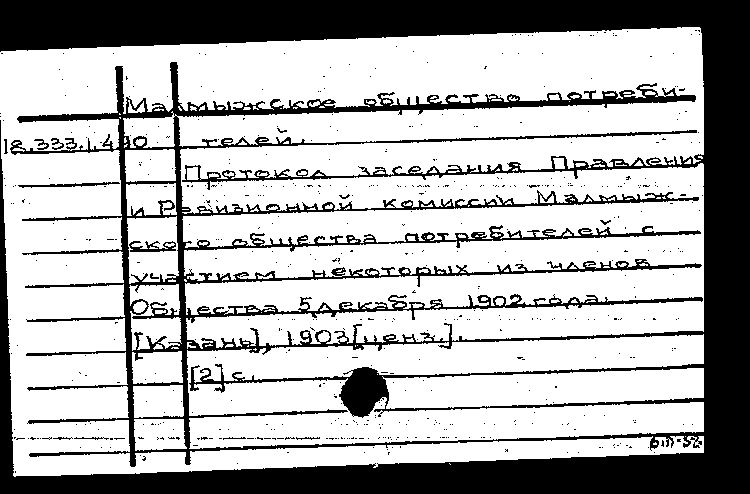 Малмыжское общество потреби-
18.333.1.490 телей.
Протокол заседания Правления
и Ревизионной комиссии Малмыж-
ского общества потребителей с
участием некоторых из членов
Общества 5 декабря 1902 года.
[Казань], 1903 [ценз.].
[2] с.